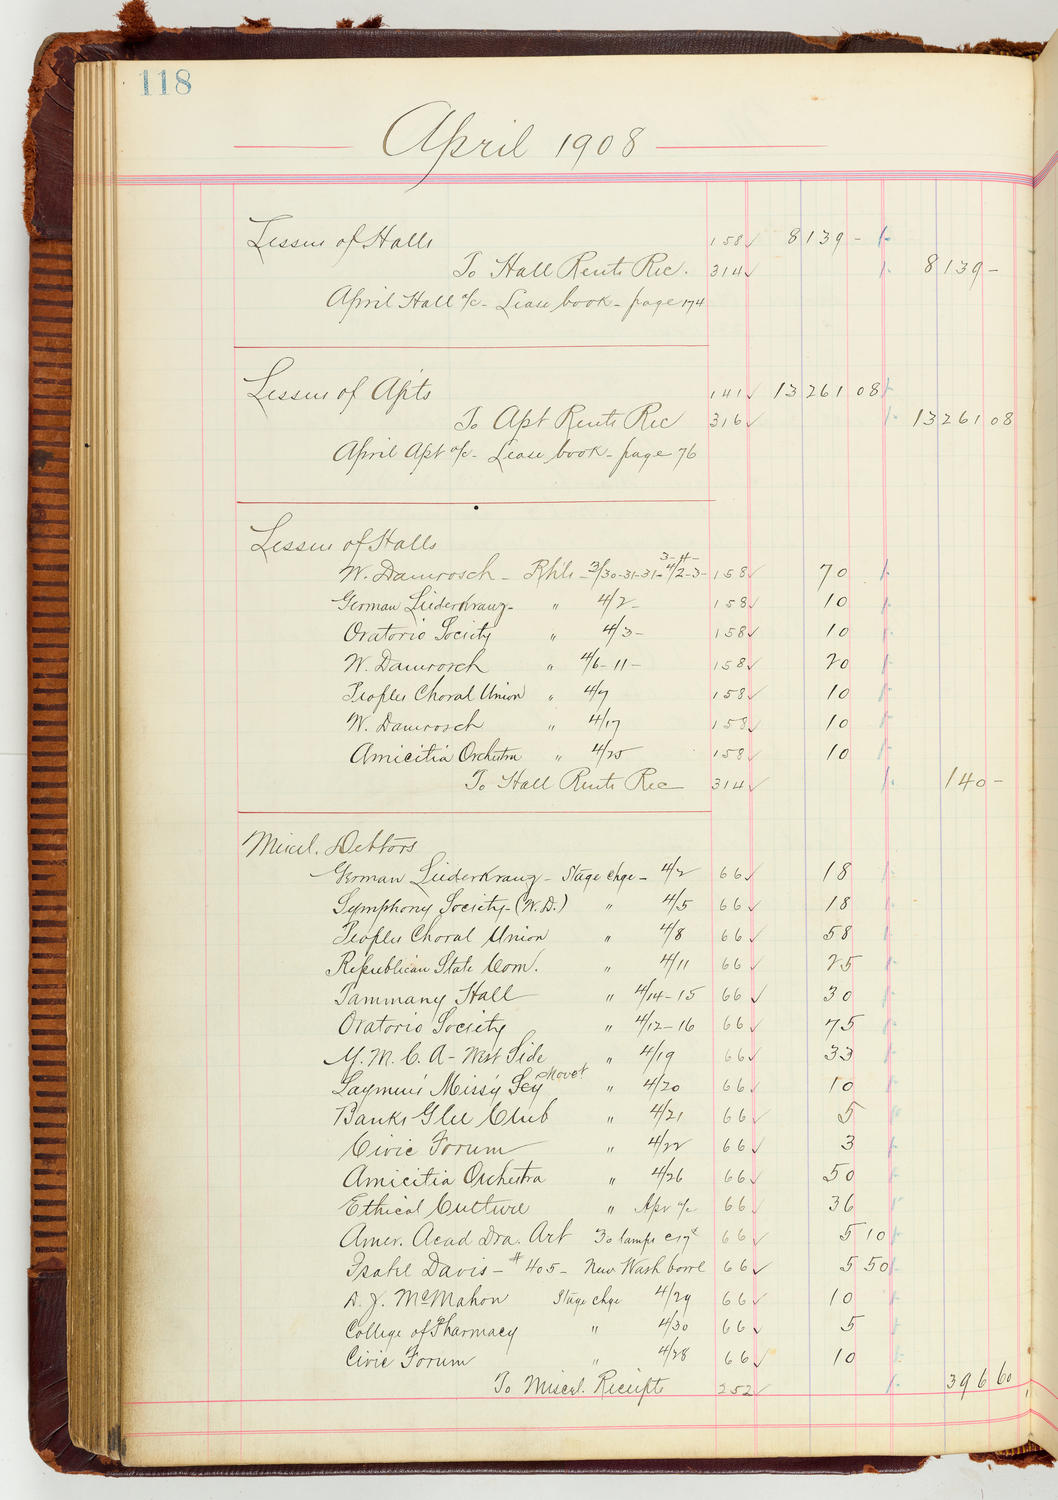 118
April 1908
Lessees of Halls 158 ✓ 8139 -
To Hall Rents Rec. 314 ✓ 8139 -
April Hall a/c - Lease book - page 174
Lessees of Apts 141 ✓ 13261 08
To Apt Rents Rec 316 ✓ 13261 08
April Apt a/c - Lease book - page 76
Lessees of Halls
3- 4-
W. Damrosch - Rhls - 3/30-31-31- 4/2-3- 158 ✓ 70
German Liederkranz - " 4/2 - 158 ✓ 10
Oratorio Society " 4/3 - 158 ✓ 10
W. Damrosch " 4/6-11 - 158 ✓ 20
Peoples Choral Union " 4/7 158 ✓ 10
W. Damrosch " 4/17 158 ✓ 10
Amicitia Orchestra " 4/25 158 ✓ 10
To Hall Rents Rec 314 ✓ 140 -
Miscel. Debtors
German Liederkranz - Stage chge - 4/2 66 ✓ 18
Symphony Society - (W.D.) " 4/5 66 ✓ 18
Peoples Choral Union " 4/8 66 ✓ 58
Republican State Com. " 4/11 66 ✓ 25
Tammany Hall " 4/14-15 66 ✓ 30
Oratorio Society " 4/12-16 66 ✓ 75
Y. M. C. A - West Side " 4/19 66 ✓ 33
Laymen's Missy Scy Movet " 4/20 66 ✓ 10
Banks Glee Club " 4/21 66 ✓ 5
Civic Forum " 4/22 66 ✓ 3
Amicitia Orchestra " 4/26 66 ✓ 50
Ethical Culture " Apr a/c 66 ✓ 36
Amer. Acad Dra. Art 30 lamps 66 ✓ 5 10
Isabel Davis - #405 - New Wash bowl 66 ✓ 5 50
D. J. McMahon Stage chge 4/29 66 ✓ 10
College of Pharmacy " 4/30 66 ✓ 5
Civic Forum " 4/28 66 ✓ 10
To Miscel. Receipts 252 ✓ 396 60